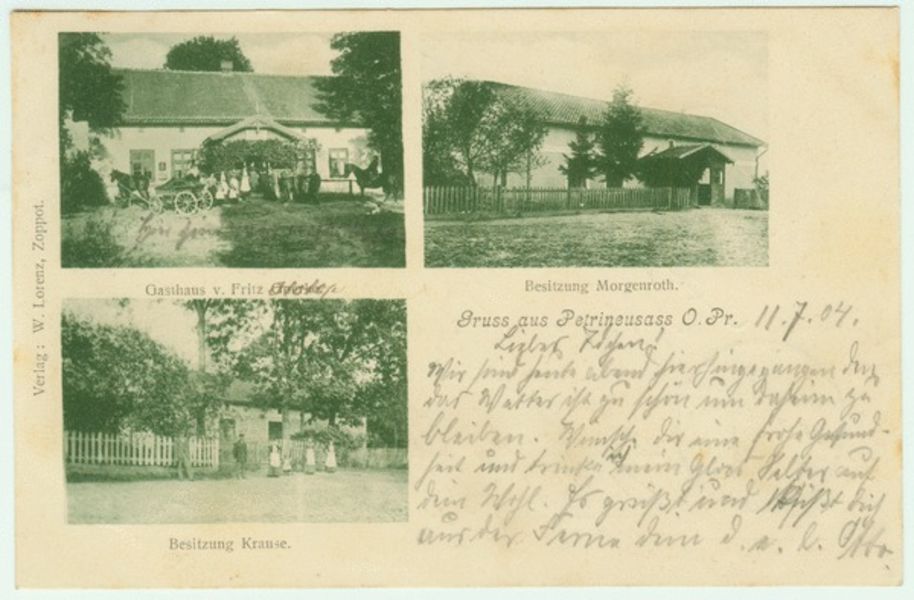 Verlag: W. Lorenz, Zoppot.
Gasthaus v. Fritz
Besitzung Morgenroth.
Besitzung Krause.
Gruss aus Petrineusass O. Pr. 11.7.04.
Wir sind heute abend hierhingegangen den
das Wetter ist zu schön um daheim zu
bleiben. Wünsche dir eine frohe Gesund-
heit und trinke mein Glas Selter auf
dein Wohl. Es grüßt und küßt dich
aus der Ferne dein d. a. l. Otto